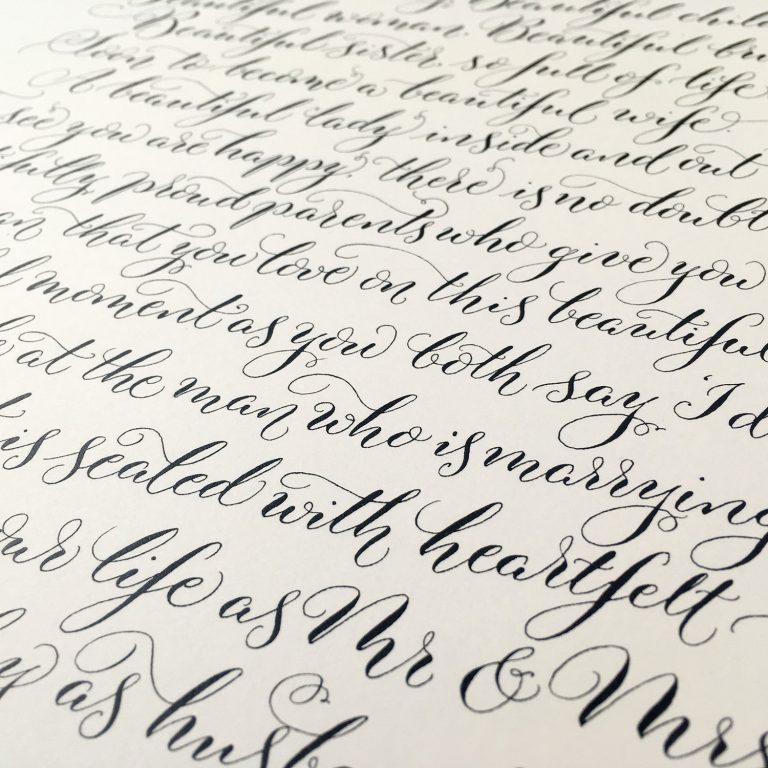 Beautiful woman. Beautiful
Beautiful sister, so full of life
Soon to become a beautiful wife.
A beautiful lady inside and out
see you are happy, there is no doubt
proud parents who give you
that you love on this beautiful
moment as you both say 'I d
at the man who is marrying
is sealed with heartfelt
life as Mr & Mrs
as husb